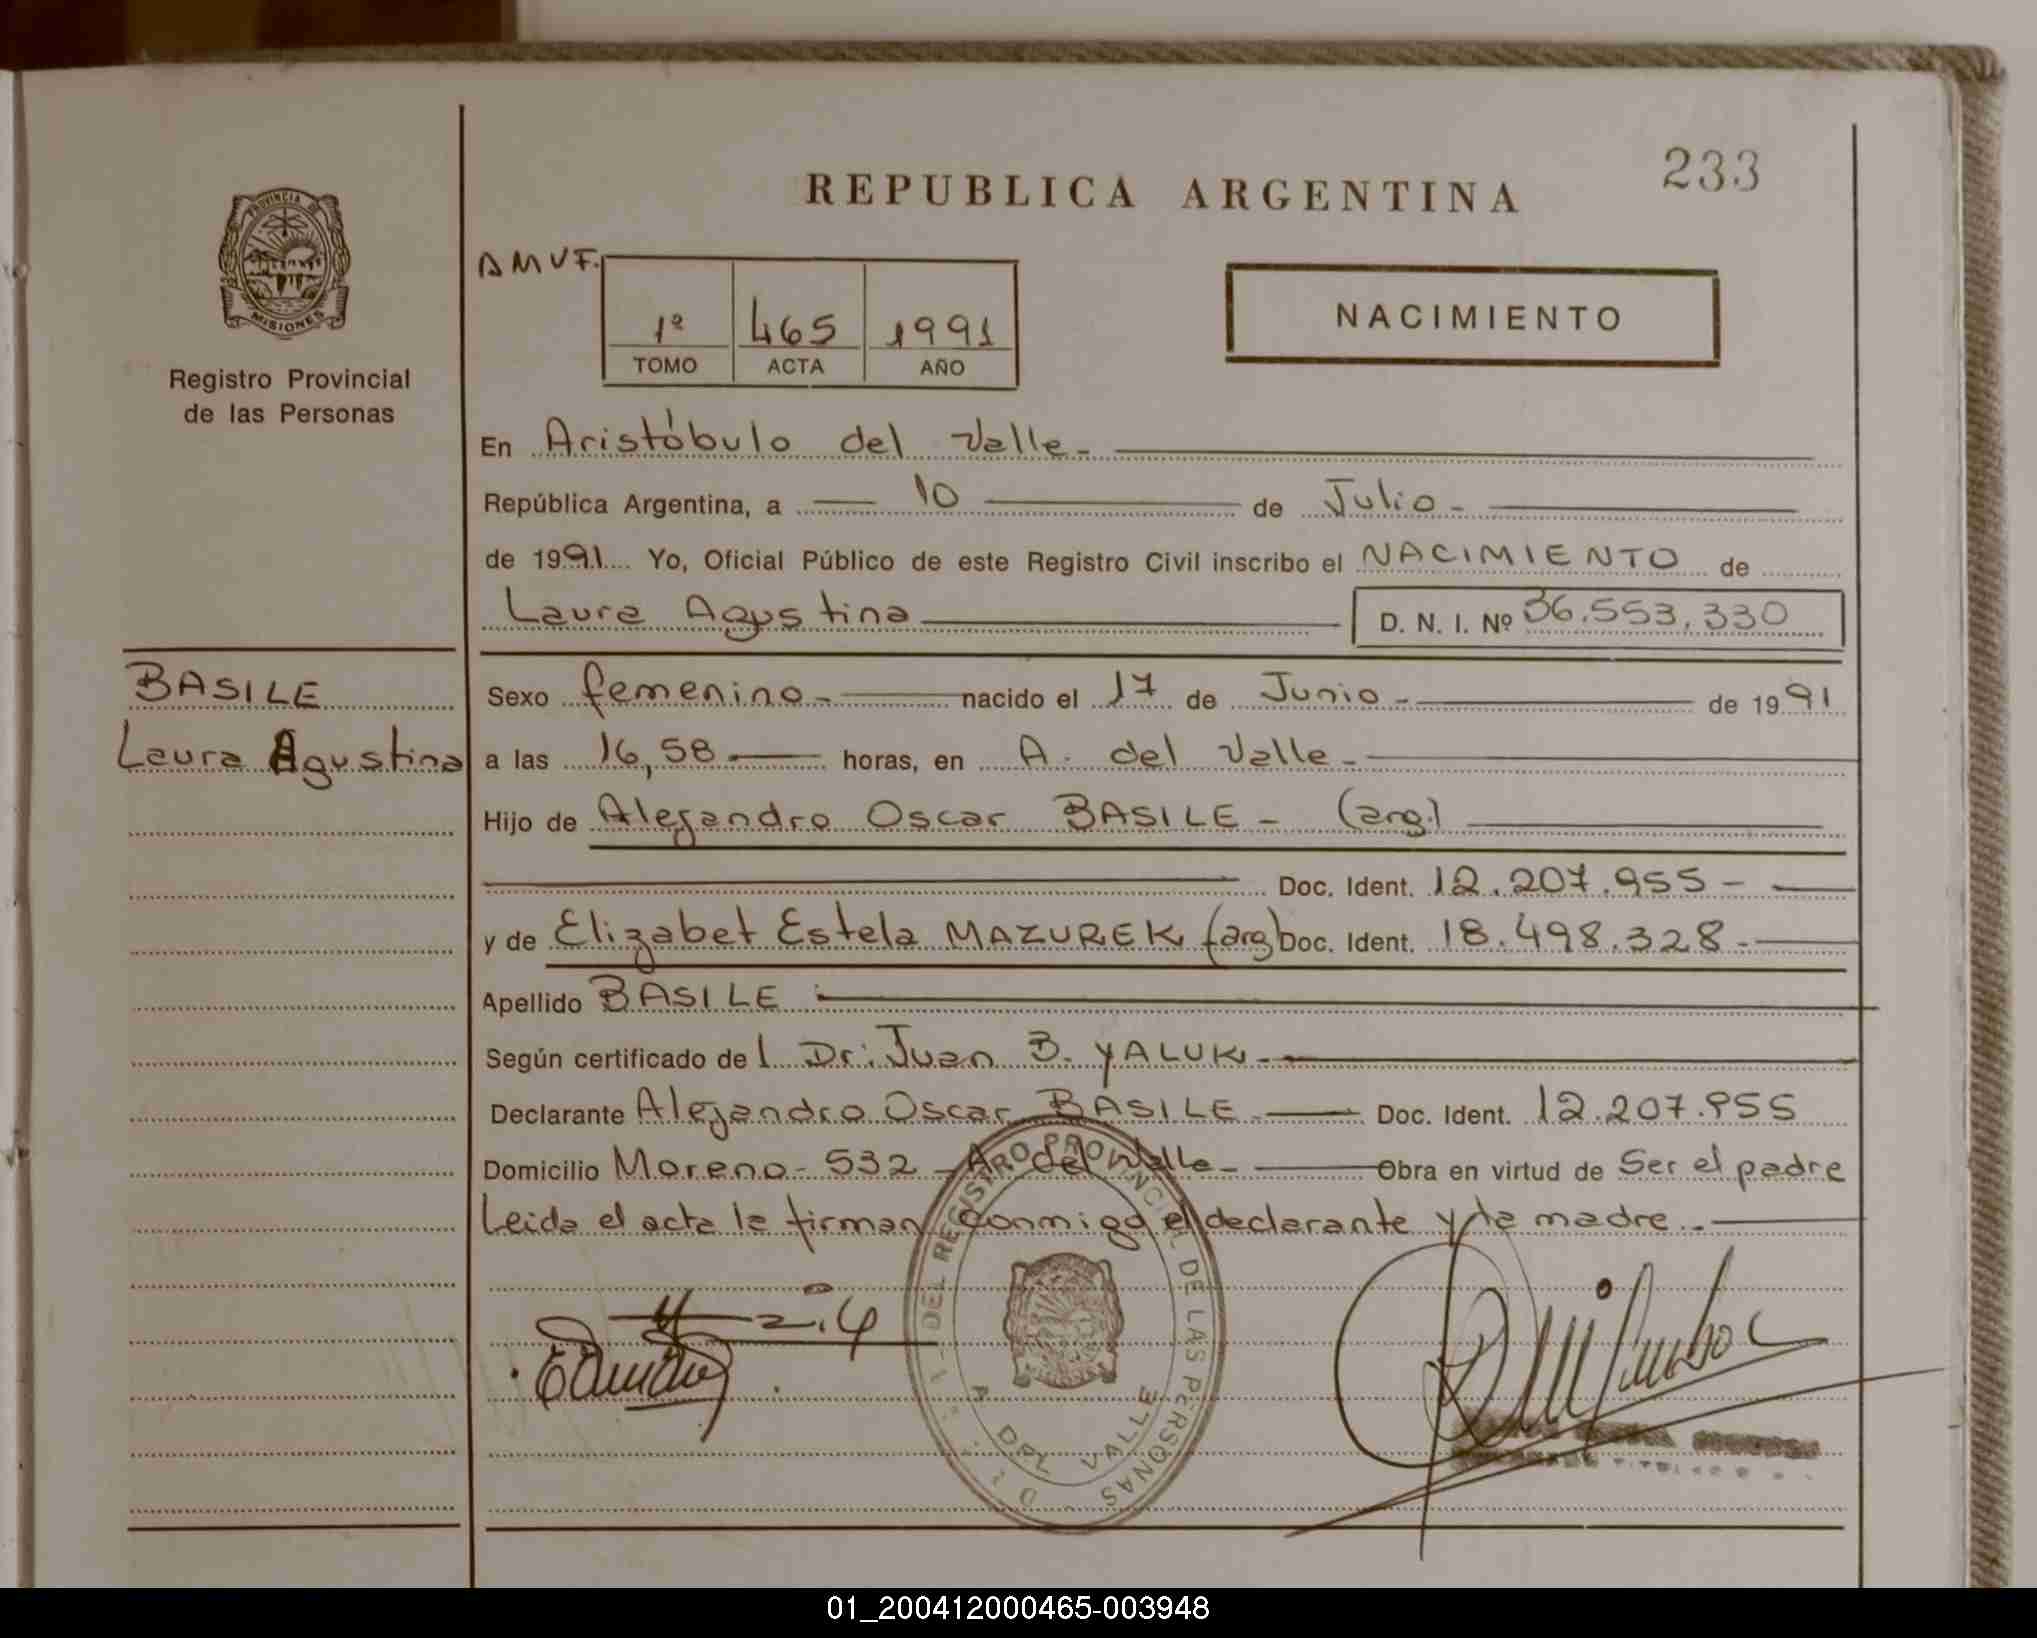 REPUBLICA ARGENTINA
233
PROVINCIA DE
MISIONES
Registro Provincial
de las Personas
AMVF.
1º 465 1991
TOMO ACTA AÑO
NACIMIENTO
En Aristóbulo del Valle-
República Argentina, a 10 de Julio-
de 1991 Yo, Oficial Público de este Registro Civil inscribo el NACIMIENTO de
Laura Agustina D. N. I. Nº 36.553.330
BASILE
Laura Agustina
Sexo femenino- nacido el 17 de Junio- de 1991
a las 16,58 horas, en A. del Valle-
Hijo de Alejandro Oscar BASILE- (arg.)
Doc. Ident. 12.207.955-
y de Elizabet Estela MAZUREK (arg) Doc. Ident. 18.498.328-
Apellido BASILE
Según certificado del Dr. Juan B. YALUK-
Declarante Alejandro Oscar BASILE- Doc. Ident. 12.207.955
Domicilio Moreno- 532 - A. del Valle- Obra en virtud de Ser el padre
Leida el acta la firman conmigo el declarante y la madre.-
DEL REGISTRO PROVINCIAL DE LAS PERSONAS
A DEL VALLE
01_200412000465-003948